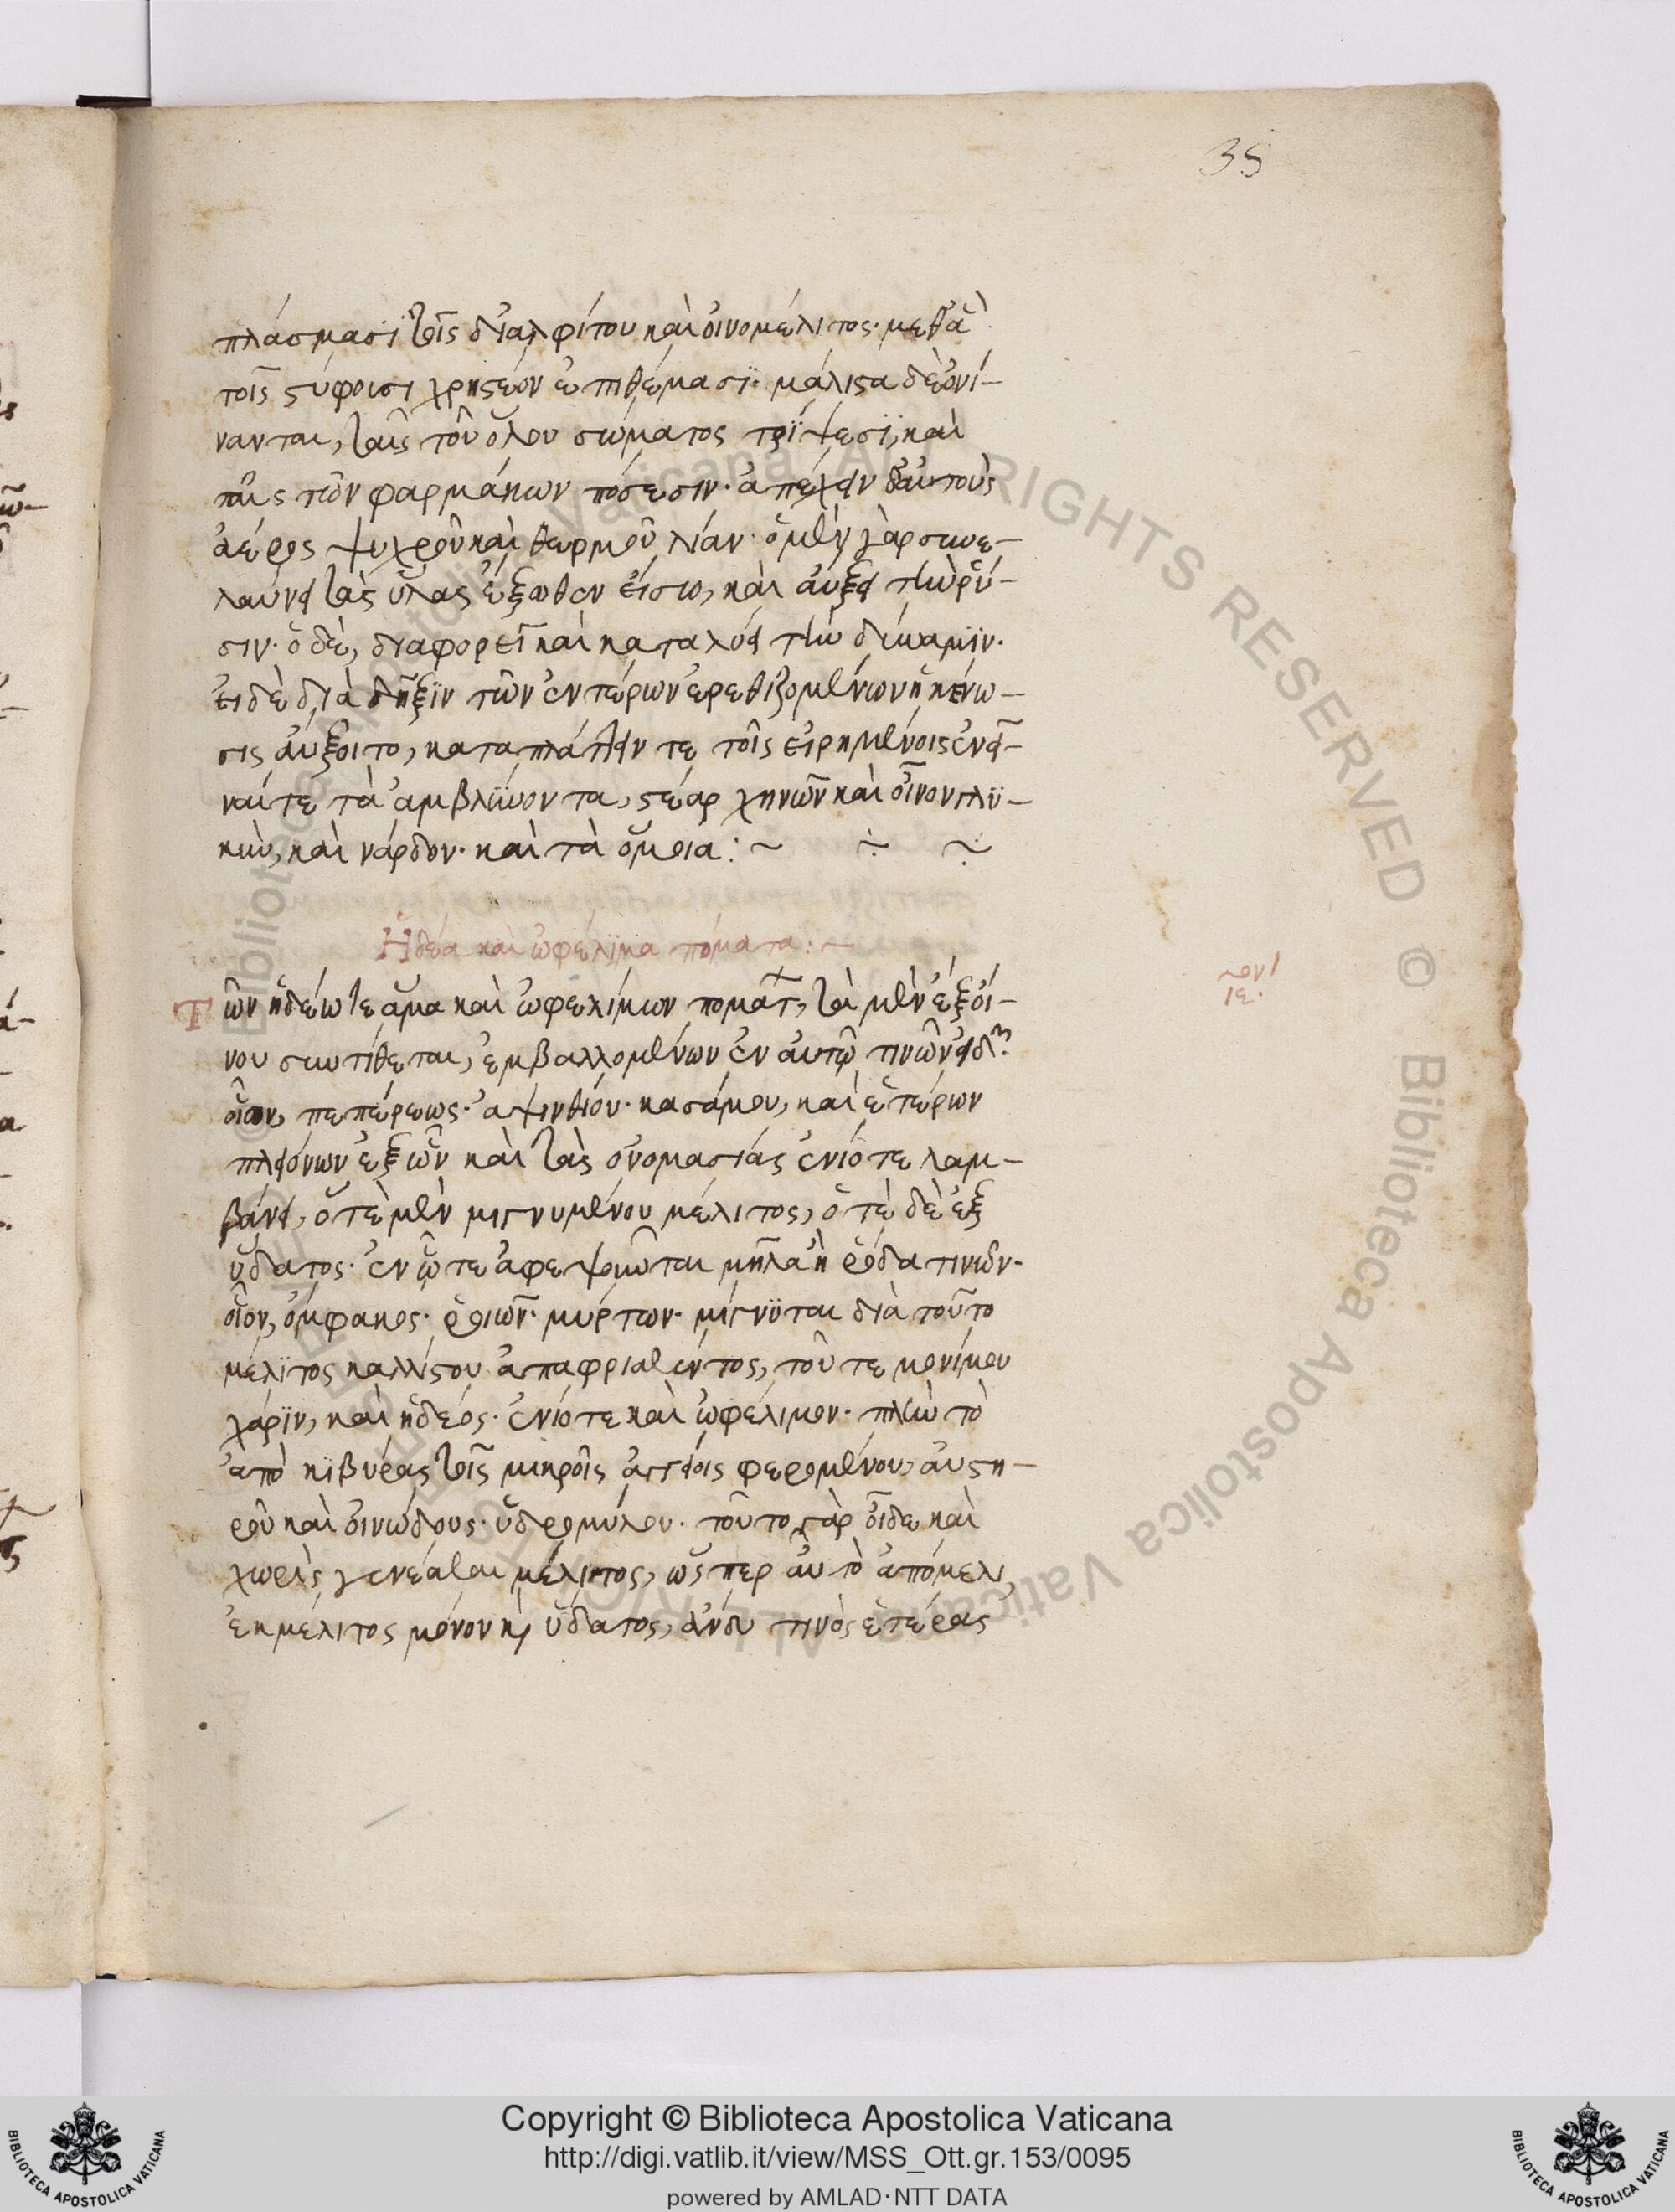 35
πλάσμασϊ τοῖς δι' ἀλφίτου καὶ οἰνομέλιτος· μεθ' ἃ
τοῖς στύφουσι χρηστέον ἐπιθέμασϊ· μάλιστα δὲ ὀνί-
νανται, ταῖς τοῦ ὅλου σώματος τρίψεσϊ, καὶ
ταῖς τῶν φαρμάκων πόσεσιν· ἀπέχειν δ' αὐτοὺς
ἀέρος ψυχροῦ καὶ θερμοῦ λίαν· ὁ μὲν γὰρ συνε-
λαύνει τὰς ὕλας ἔξωθεν εἴσω, καὶ αὔξει τὴν ῥύ-
σιν· ὁ δὲ, διαφορεῖ καὶ καταλύει τὴν δύναμϊν·
εἰ δὲ διὰ δῆξϊν τῶν ἐντέρων ἐρεθιζομένων ἡ κένω-
σις αὔξοιτο, καταπλάττειν τε τοῖς εἰρημένοις ἐνεῖ-
ναί τε τὰ ἀμβλύνοντα, στέαρ χηνῶν καὶ οἶνον γλυ-
κὺν, καὶ νάρδον· καὶ τὰ ὅμοια :~
Ἡδέα καὶ ὠφέλϊμα πόματα :~
Τῶν ἡδέων τε ἅμα καὶ ὠφελίμων πομάτ, τὰ μὲν ἐξ οἴ-
νου συντίθεται, ἐμβαλλομένων ἐν αὐτῷ τινῶν εἰδ
οἷον, πεπέρεως· ἀψινθίου· κασάμου, καὶ ἑτέρων
πλειόνων ἐξ ὧν καὶ τὰς ὀνομασίας ἐνίοτε λαμ-
βάνει, ὁτὲ μὲν μιγνυμένου μέλιτος, ὁτὲ δὲ ἐξ
ὕδατος· ἐν ᾧ τε ἀφεψοῦνται μῆλα ἢ ῥόδα τινῶν·
οἷον, ὄμφακος· ῥοιῶν· μύρτων· μίγνϋται διὰ τοῦτο
μέλϊτος καλλίστου ἀπαφρισθέντος, τοῦ τε μονίμου
χάρϊν, καὶ ἡδέος· ἐνίοτε καὶ ὠφέλιμον· πλὴν τὸ
ἀπὸ κϊβύρας τοῖς μικροῖς ἀγγείοις φερομένου, αὐστη-
ροῦ καὶ οἰνώδους· ὑδρομήλου· τοῦτο γὰρ οἶδε καὶ
χωρὶς γενέσθαι μέλιτος, ὥσπερ αὖ τὸ ἀπόμελι,
ἐκ μέλιτος μόνον κ ὕδατος, ἄνευ τινὸς ἑτέρας
Copyright © Biblioteca Apostolica Vaticana
http://digi.vatlib.it/view/MSS_Ott.gr.153/0095
powered by AMLAD·NTT DATA
BIBLIOTECA APOSTOLICA VATICANA
BIBLIOTECA APOSTOLICA VATICANA
© Biblioteca Apostolica Vaticana ALL RIGHTS RESERVED © Biblioteca Apostolica Vaticana ALL RIGHTS RESERVED